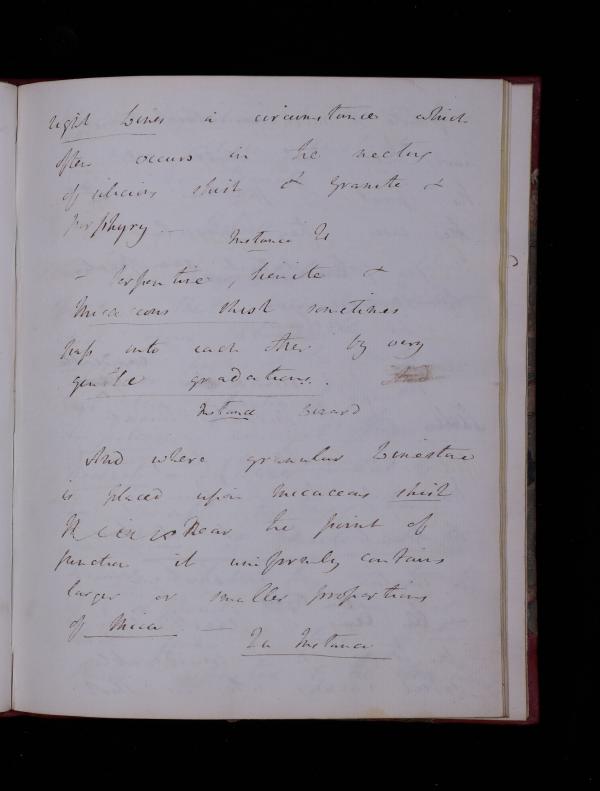 right Lines a circumstance which
often occurs in the
of shist & Granite &
Porphyry — Instance
– Serpentine, Sienite &
Micaceous shist sometimes
pass into each other by very
gentle gradations.
Instance Lizard
And where granular Limestone
is placed upon micaceous shist
near the point of
junction it uniformly contains
larger or smaller proportions
of Mica —
Instance